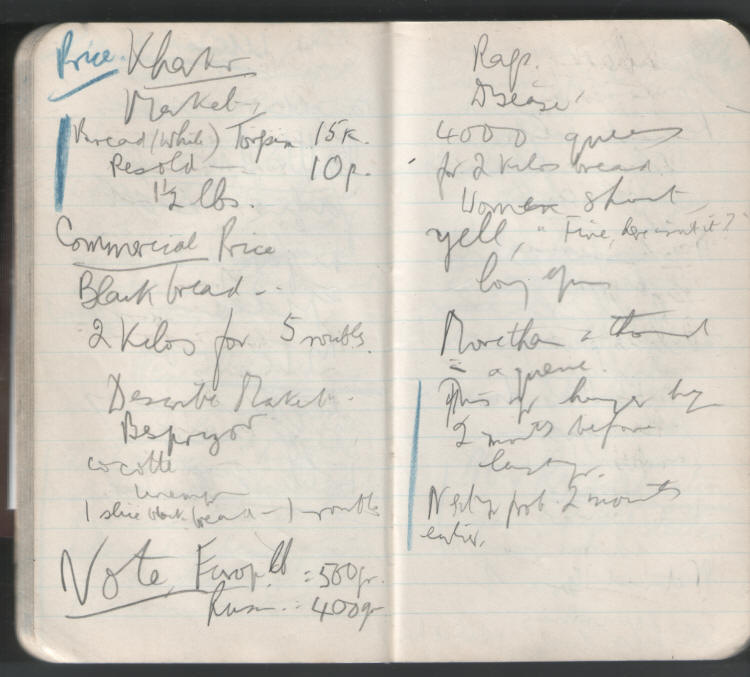 Price. Kharkov
Market,
Bread (White) Torgsin 15k.
Resold — 10p.
1½ lbs.
Commercial Price
Black bread --
2 Kilos for 5 roubles.
Describe Market.
Bespriz
cocotte
Unemp
1 slice black bread — 1 rouble
Note, Europ. lb = 500gr.
Russn. = 400gr
Rags.
Disease.
4000 queue
for 2 kilos bread.
Women shout,
yell, " Fine, here isn't it?"
long queue
More than a thousand
in a queue.
This yr hunger beg
2 months before
last yr.
Next yr prob. 2 months
earlier.